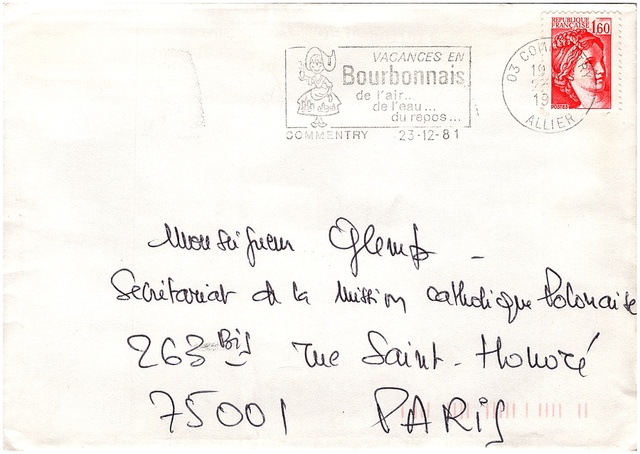 REPUBLIQUE
FRANÇAISE 1,60
POSTES
VACANCES EN
Bourbonnais
de l'air..
de l'eau...
du repos...
COMMENTRY 23-12-81
03 COM
19
19
ALLIER
Monseigneur Glemp -
Secrétariat de la Mission catholique Polonaise
263 Bis rue Saint-Honoré
75001 PARIS